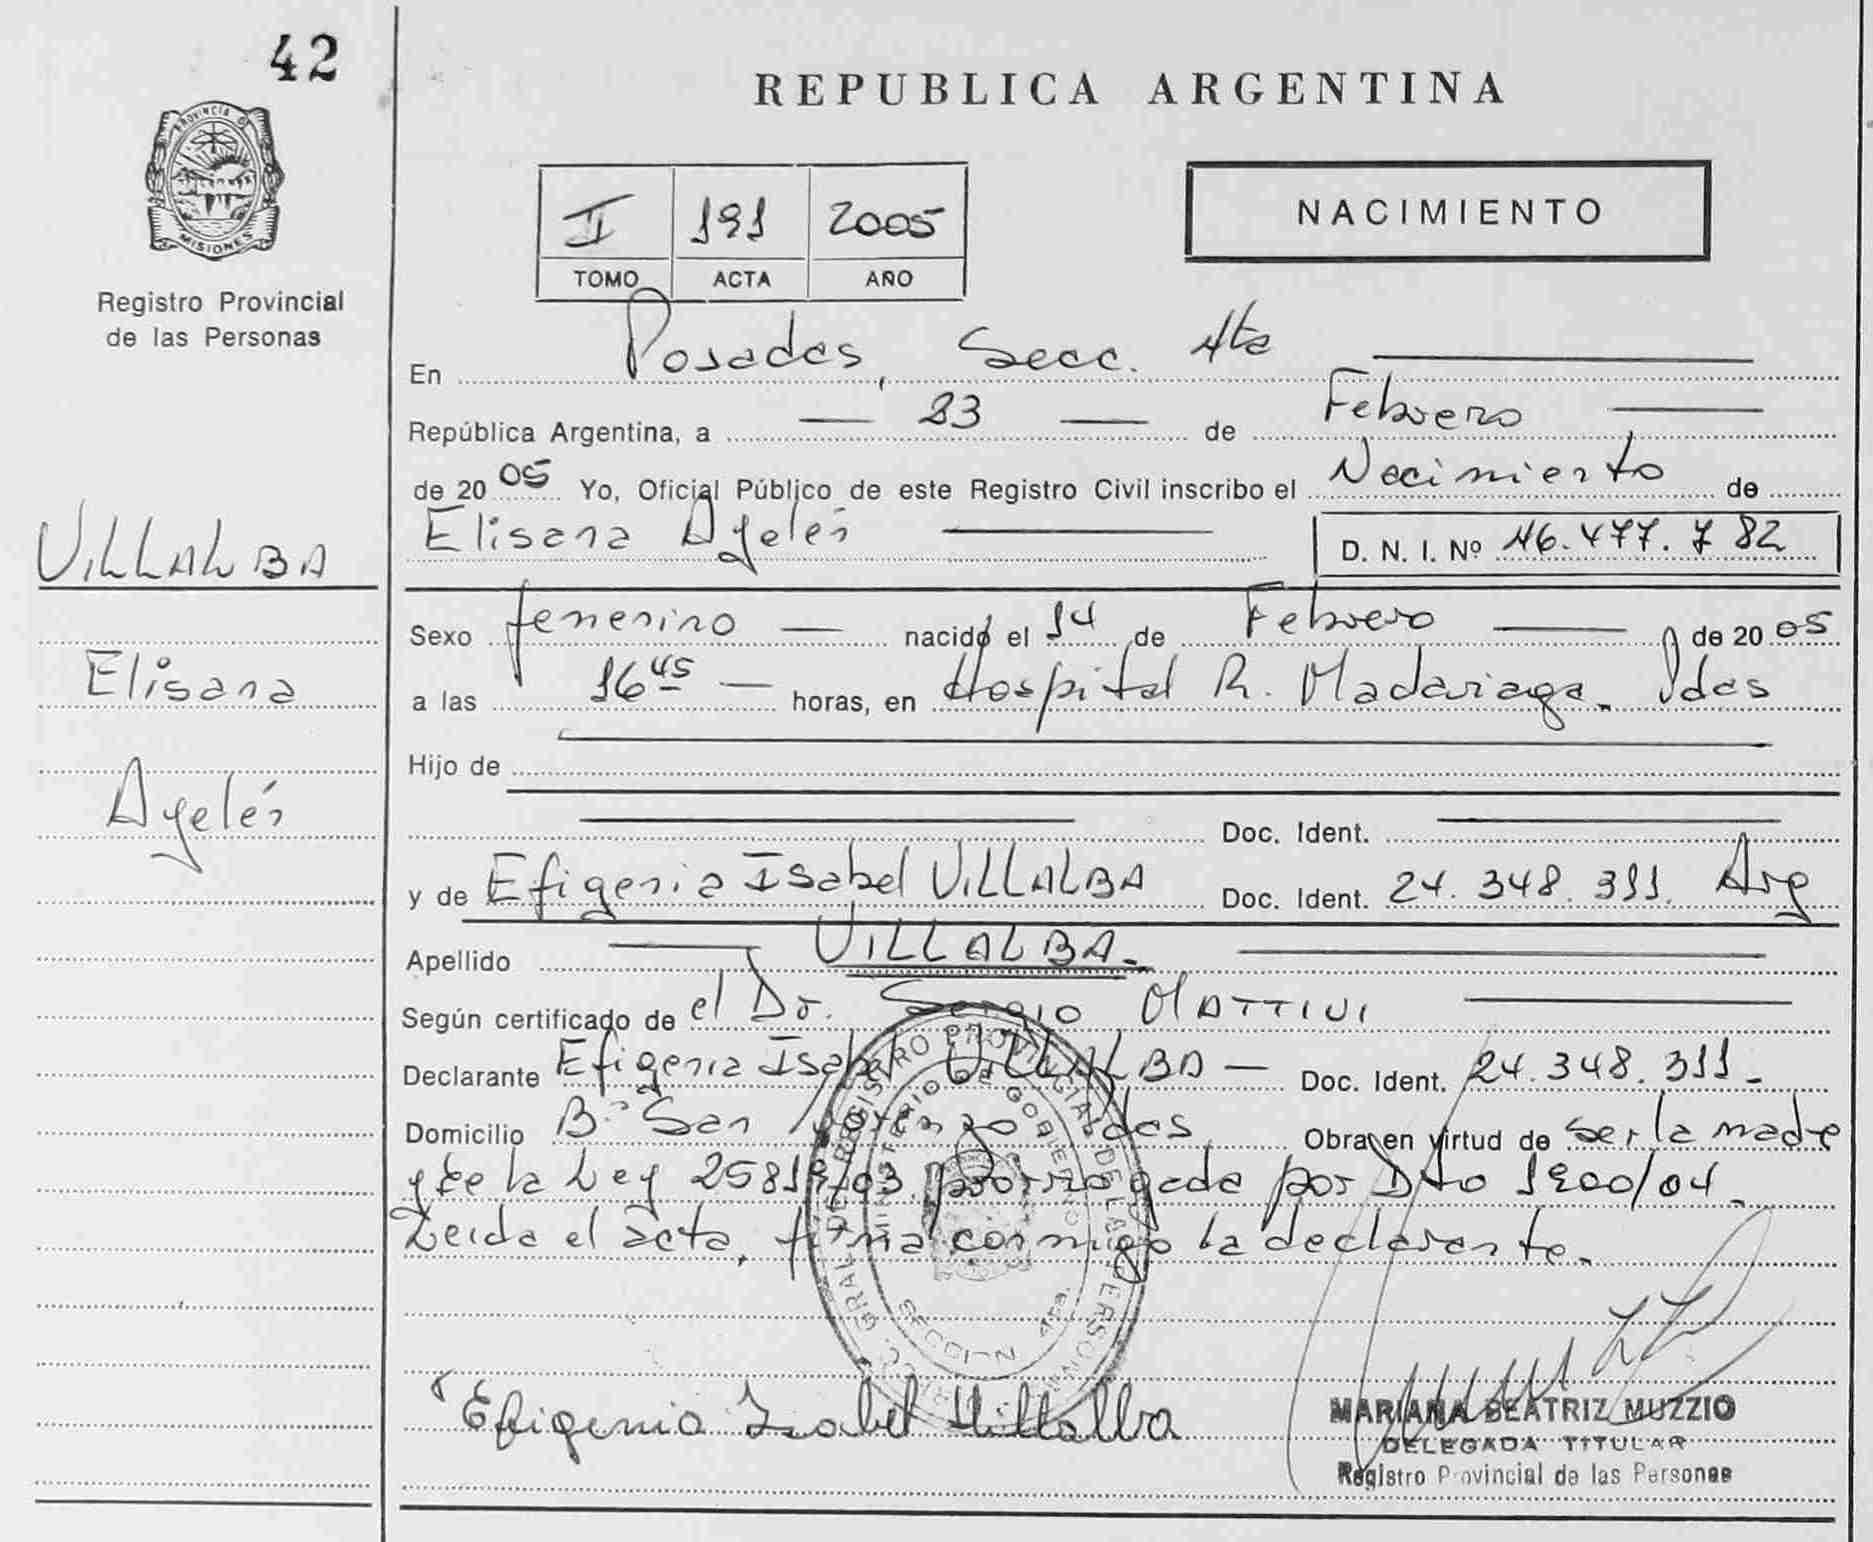 42
PROVINCIA DE
MISIONES
Registro Provincial
de las Personas
VILLALBA
Elisana
Ayelén
REPUBLICA ARGENTINA
II 191 2005
TOMO ACTA AÑO
NACIMIENTO
En Posadas, Secc. 4ta
República Argentina, a 23 de Febrero
de 20 05 Yo, Oficial Público de este Registro Civil inscribo el Nacimiento de
Elisana Ayelén D. N. I. Nº 46.477.782
Sexo femenino nacido el 14 de Febrero de 20 05
a las 16 45 horas, en Hospital R. Madariaga. Pdas
Hijo de
Doc. Ident.
y de Efigenia Isabel VILLALBA Doc. Ident. 24.348.311. Arg
Apellido VILLALBA.
Según certificado de el Dr. Sergio MATTIVI
Declarante Efigenia Isabel VILLALBA Doc. Ident. 24.348.311.
Domicilio Bº San Lorenzo Pdas Obra en virtud de ser la madre
y de la Ley 25819/03 prorrogada por Dto 1900/04.
Leida el acta, firma conmigo la declarante.
REGISTRO PROVINCIAL DE LAS PERSONAS
MINISTERIO DE GOBIERNO
Efigenia Isabel Villalba
MARIANA BEATRIZ MUZZIO
DELEGADA TITULAR
Registro Provincial de las Personas